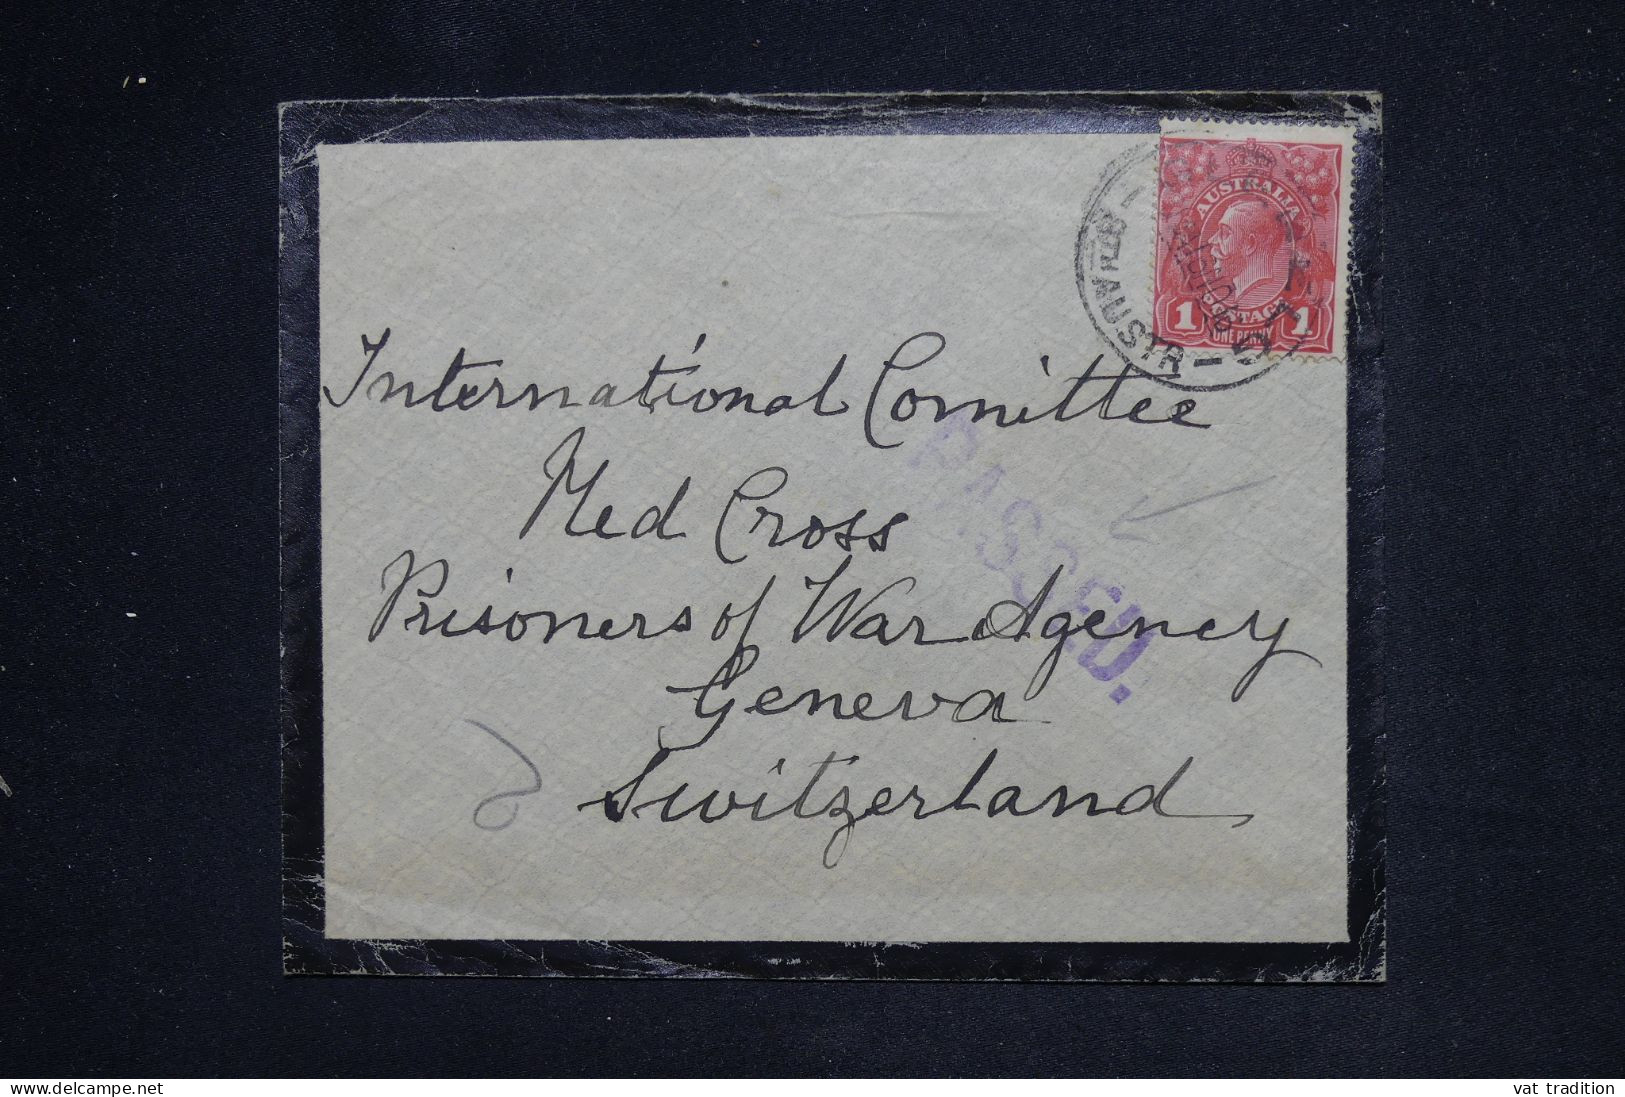 AUSTRALIA
POSTAGE
1 ONE PENNY 1
AUSTR
International Comittee
PASSED.
Red Cross
Prisoners of War Agency
Geneva
Switzerland
www.delcampe.net
vat tradition